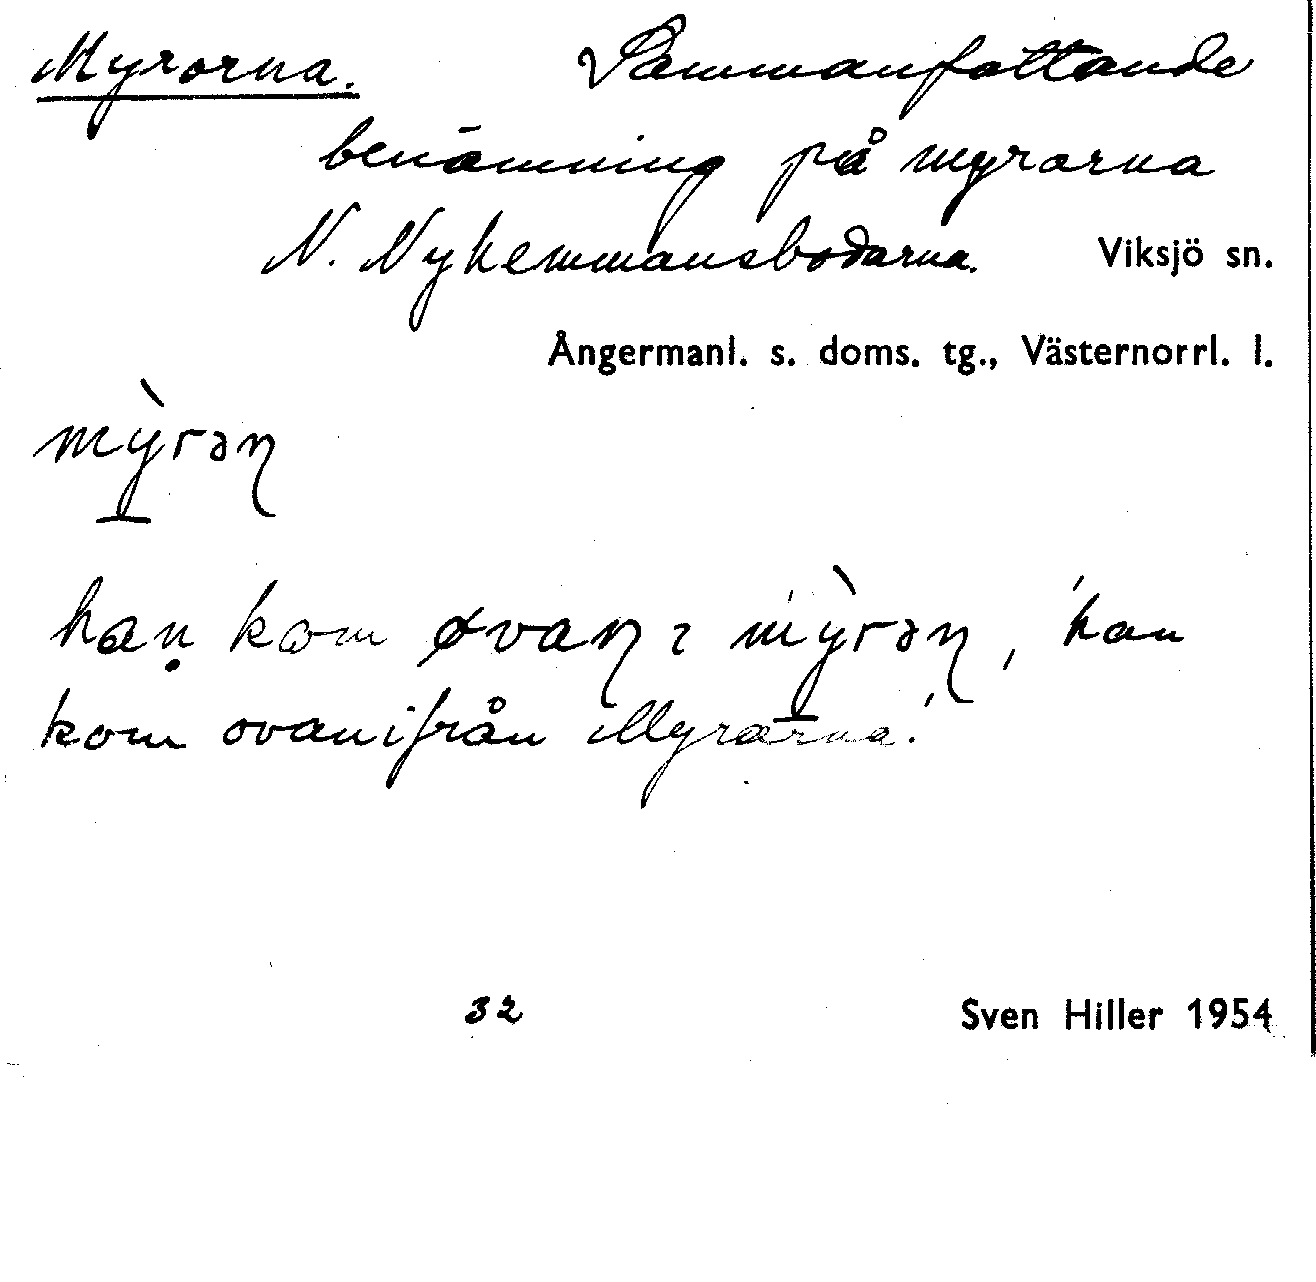 Myrorna. Sammanfattande
benämning på myrarna
N. Nyhemmansbodarna. Viksjö sn.
Ångermanl. s. doms. tg., Västernorrl. l.
mỳrəɳ
haṇ kom øvaɳ ɩ mỳrəɳ, 'han
kom ovanifrån Myrarna'.
32 Sven Hiller 1954